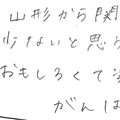 山形から関
少ないと思う
おもしろくて
がんば